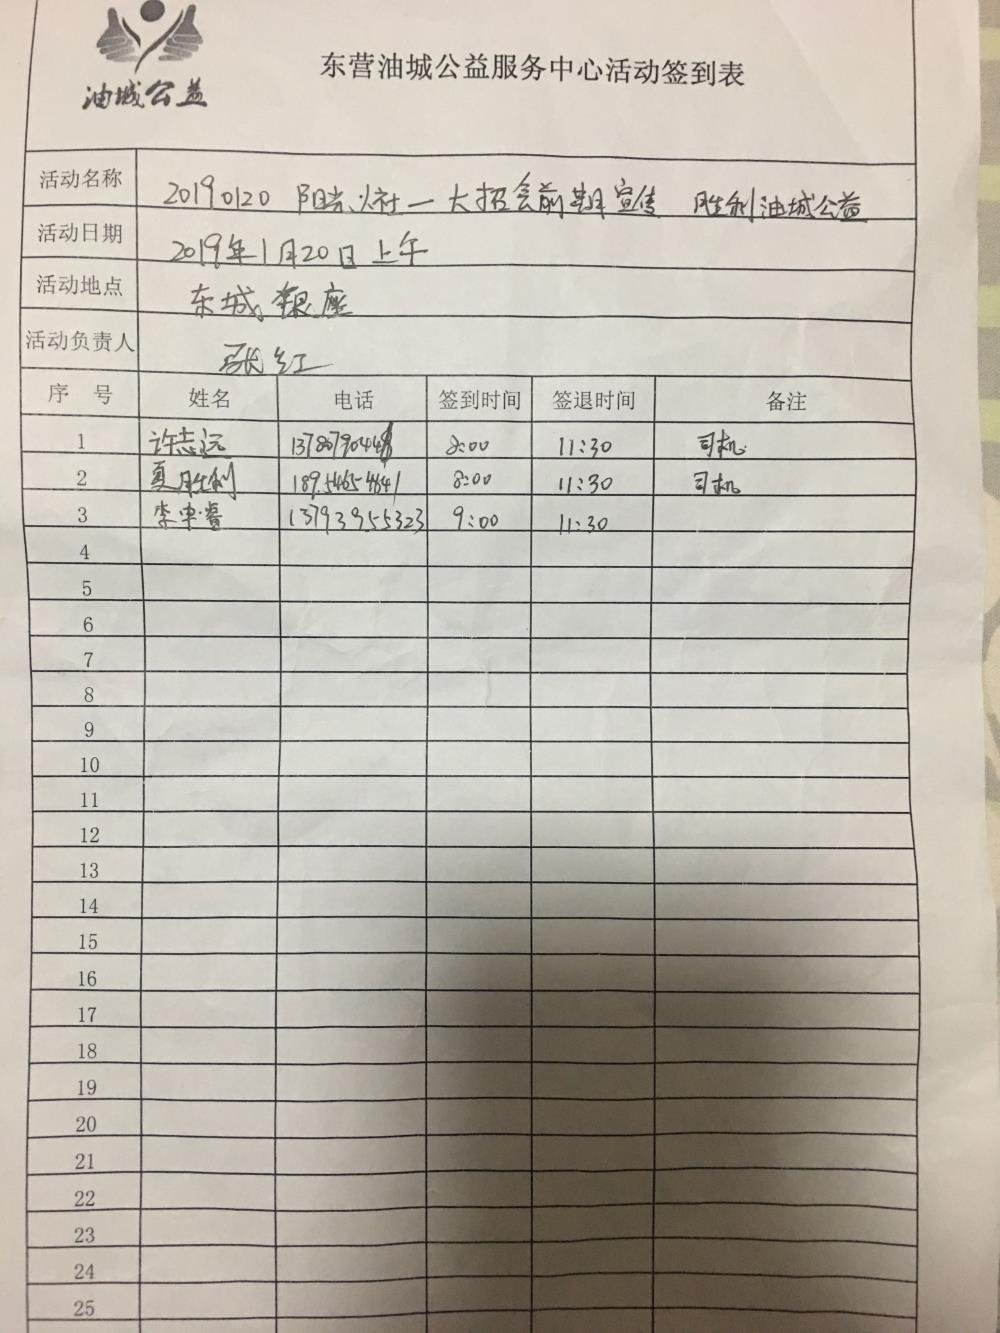 油城公益
东营油城公益服务中心活动签到表
活动名称 20190120 阳 一大招会前期宣传 胜利油城公益
活动日期 2019年1月20日上午
活动地点 东城银座
活动负责人 张红
序 号 姓名 电话 签到时间 签退时间 备注
1 许志远 8:00 11:30 司机
2 夏胜利 18954654641 8:00 11:30 司机
3 李中睿 13793955323 9:00 11:30
4
5
6
7
8
9
10
11
12
13
14
15
16
17
18
19
20
21
22
23
24
25